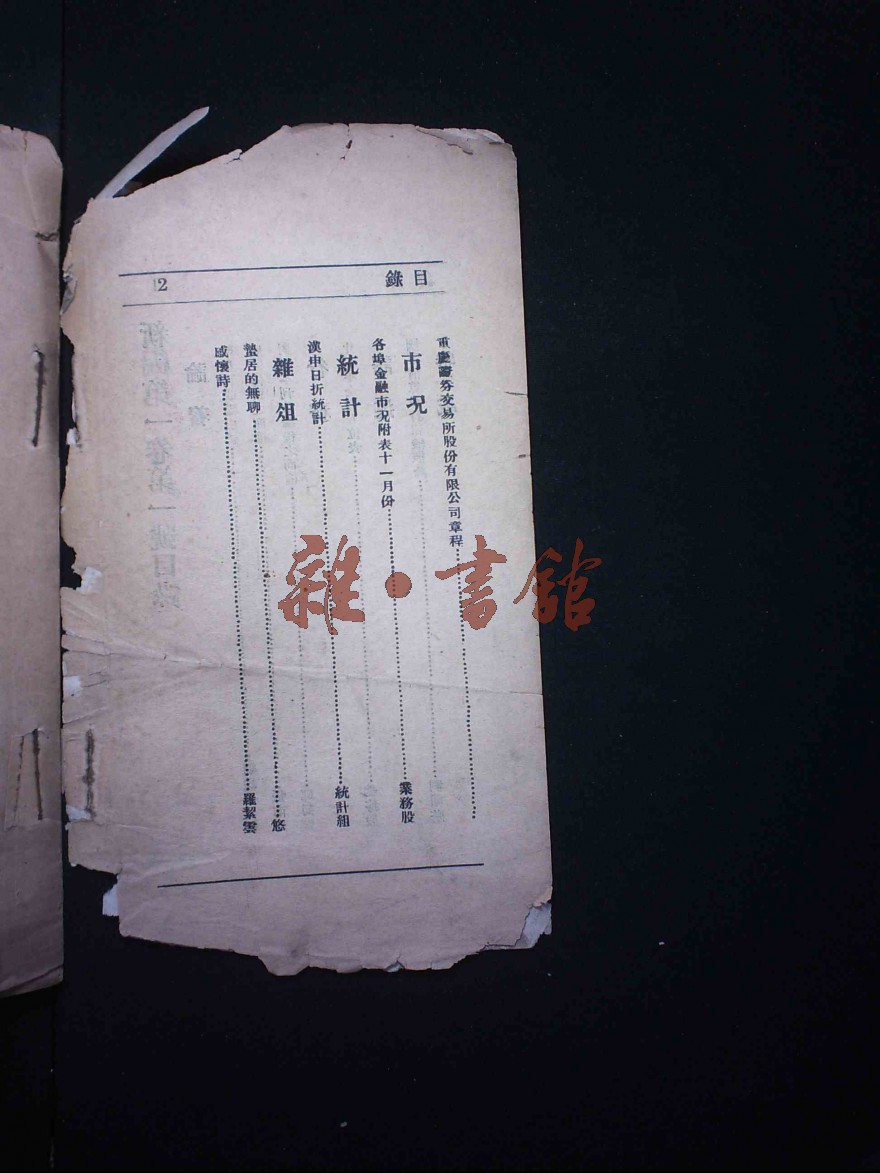 目錄
2
重慶證券交易所股份有限公司章程
市況
各埠金融市況附表十一月份 業務股
統計
漢申日折統計 統計組
雜俎
蟄居的無聊 悠
感懷詩 羅絜雲
雜·書館